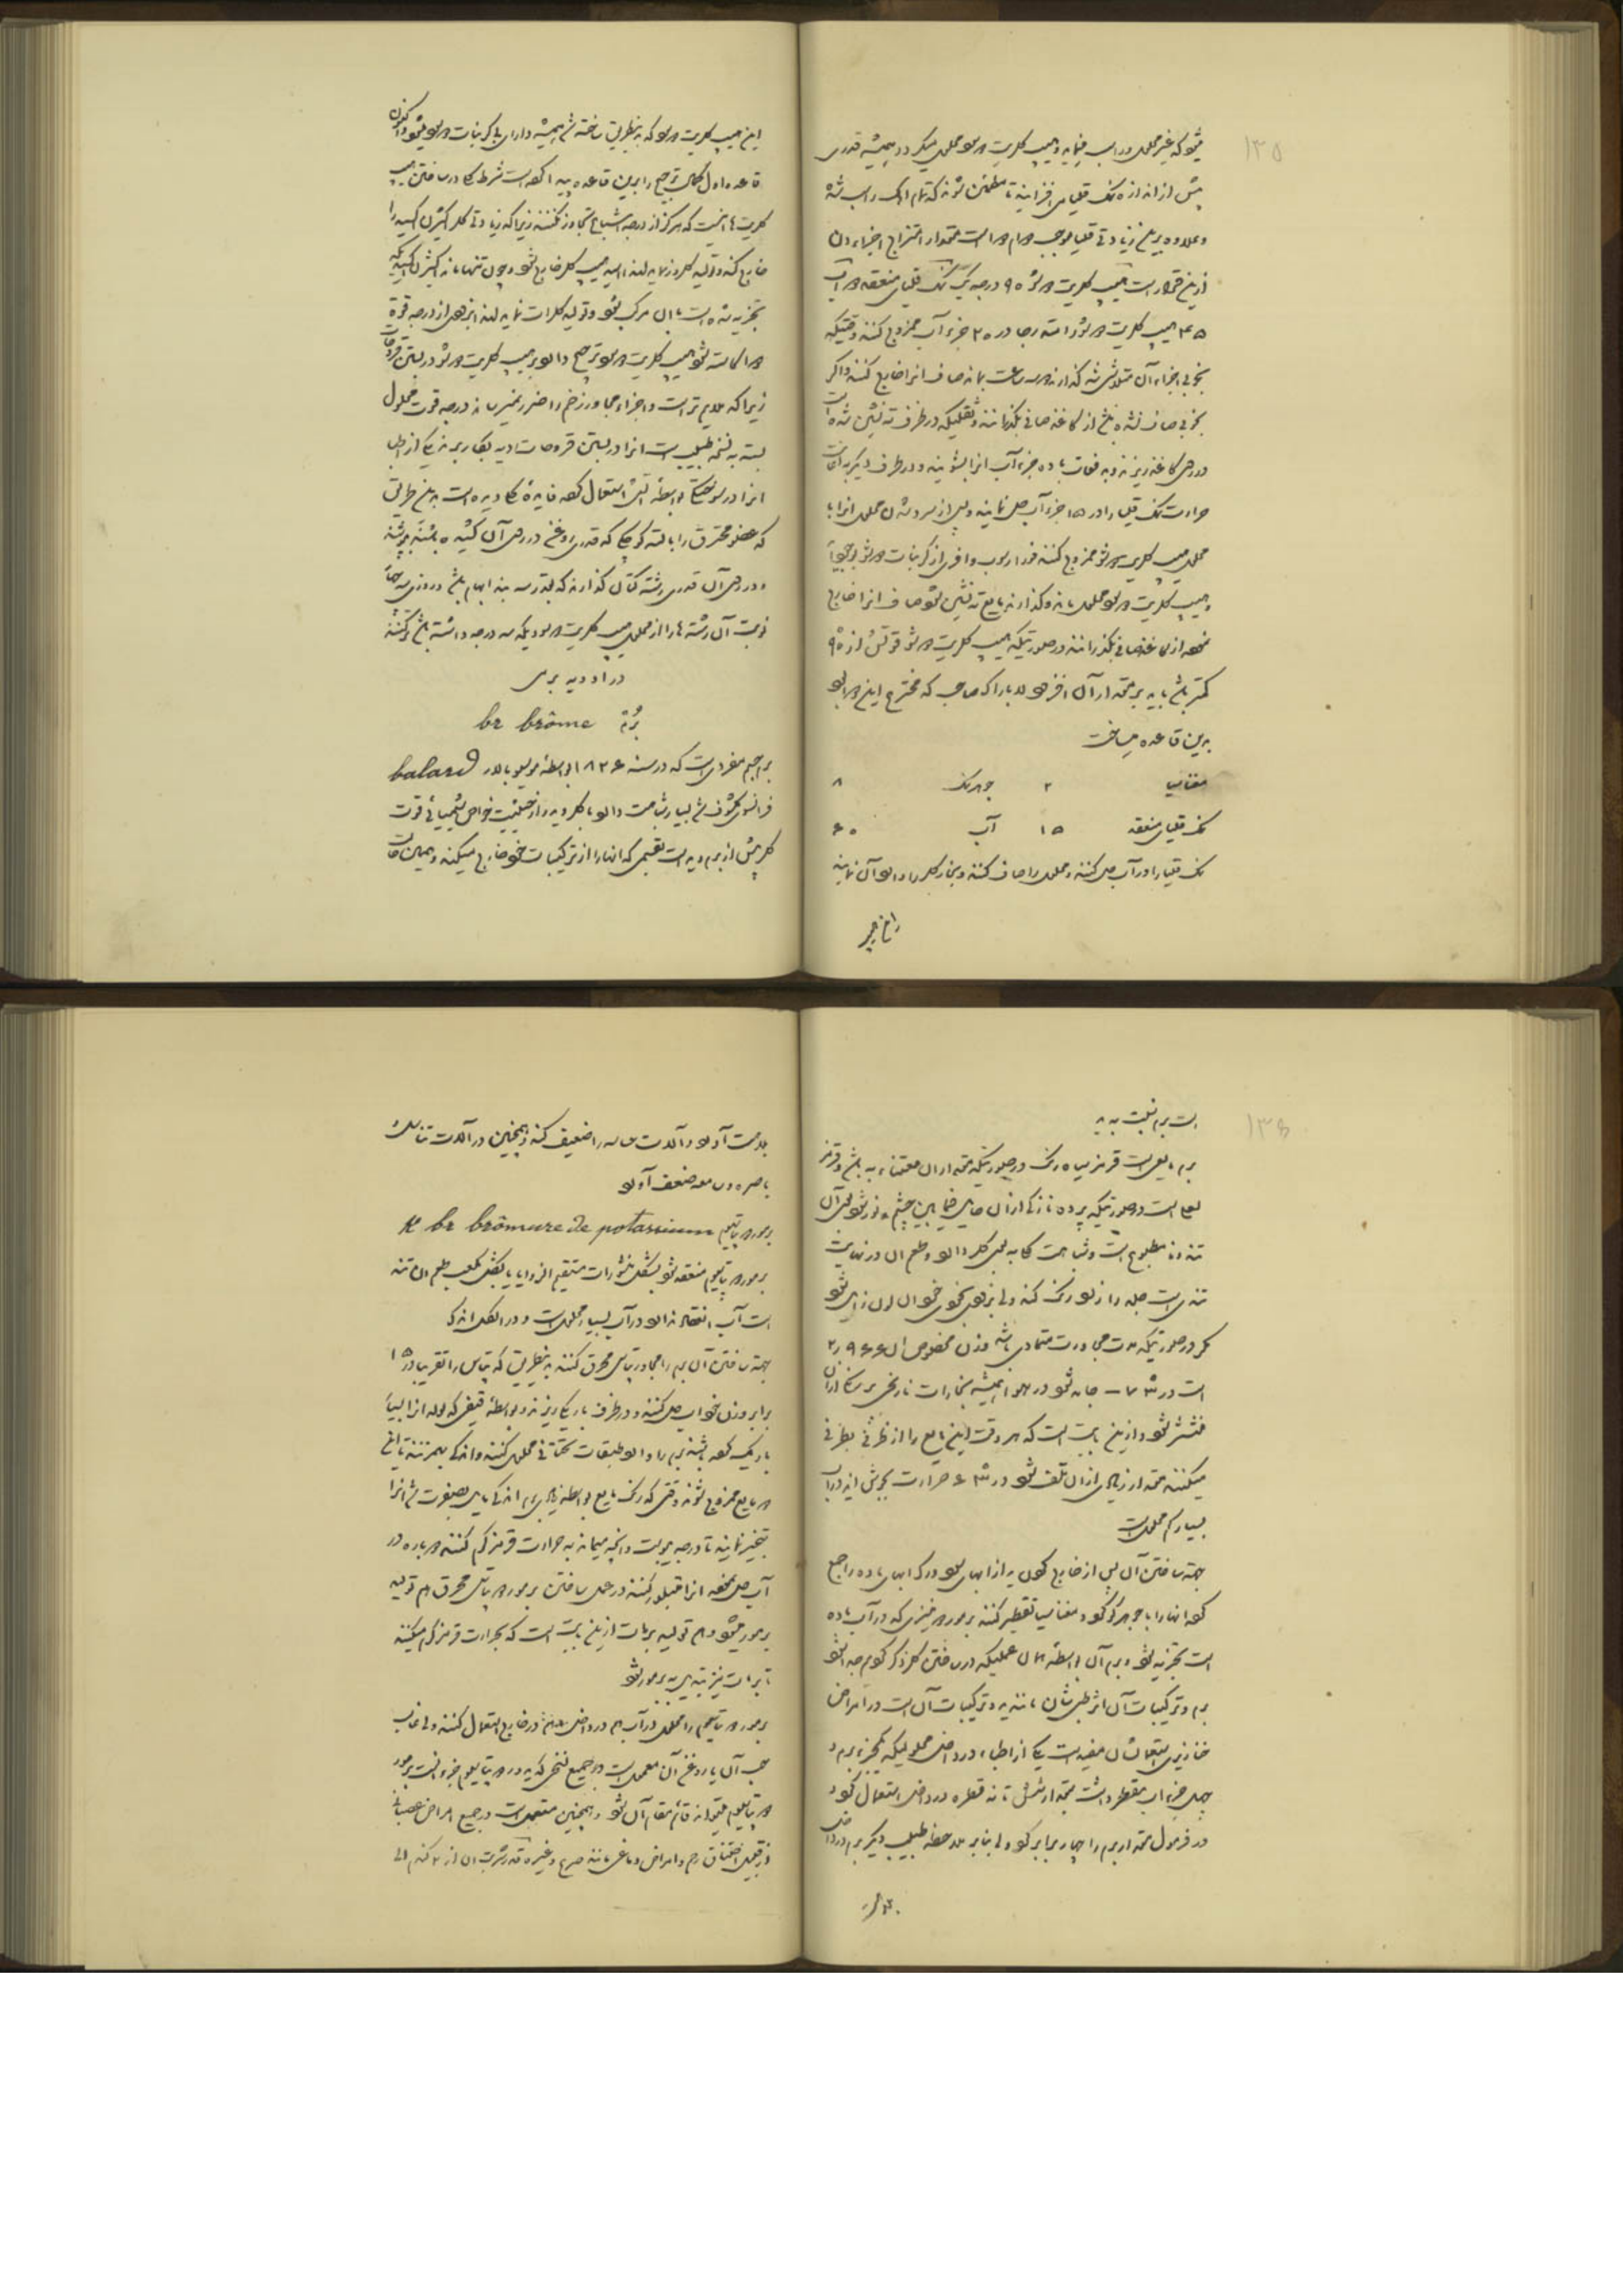 ۱۳۵
میشود که غیر محلول در آب میماند و هیپ کلریت دو سود محلول میگردد و همیشه قدری
بیش از اندازه نمک قلیا میافزایند تا مطمئن شوند که تمام آهک راسب شده
و علاوه بر این زیادتی قلیا موجب دوام دوا است مقدار امتزاج اجزاء آن
ازین قرار است هیپ کلریت دو شو ۹۰ درجه یک نمک قلیای منعقد دو آب
۴۵ هیپ کلریت دو شو را در ۳۰ جزء آب ممزوج کنند وقتیکه
بخوبی اجزاء آن متلاشی شد گذارند دو سه ساعت بماند صاف آنرا خارج کنند و اگر
بخوبی صاف نشده باشد از کاغذ صافی بگذرانند و ثفلیکه در ظرف ته نشین شده است
در روی کاغذ ریزند و بدفعات با ده جزء آب آنرا بشویند و در ظرف دیگر باعانت
حرارت نمک قلیا را در ۱۵ جزء آب حل نمایند و پس از سرد شدن محلول آنرا با
محلول هیپ کلریت دو شو ممزوج کنند فوراً رسوب وافری از کربنات دو شو بوجود آید
و هیپ کلریت دو سود محلول ماند و گذارند مایع ته نشین شود صاف آنرا خارج
نموده از کاغذ صافی بگذرانند در صورتیکه هیپ کلریت دو شو قوتش از ۹۰
کمتر باشد باید بر مقدار آن افزود لاباراک صاحب که مخترع این دوا بود
بدین قاعده میساخت
مغنیسیا ۲ جوهر نمک ۸
نمک قلیای منعقد ۱۵ آب ۶۰
نمک قلیا را در آب حل کنند و محلول را صاف کنند و بخار کلر را داخل آن نمایند
این هیپ
این هیپ کلریت دو سود که باین طریق ساخته شد همیشه دارای بی کربنات دو سود میشود اکنون
قاعده اول کمال ترجیح را برین قاعده پیدا کرده است شرط کار در ساختن هیپ
کلریت ها اینست که هرگز از درجه اشباع تجاوز نکنند زیرا که زیادتی کلر اکسیژن اکسید را
خارج کند و تولید کلرور نماید لهذا اسید هیپ کلر خارج شود و چون تنها ماند اکسیژن اکسیدیکه
تجزیه شده است با آن مرکب شود و تولید کلرات نماید لهذا بزودی از درجه قوة
دوا کاسته شود هیپ کلریت دو سود ترجیح دارد بر هیپ کلریت دو شو در بستن قروحات
زیرا که ملایم تر است و اجزاء مجاور زخم را ضرر نمیرساند درجه قوت محلول
بسته به نسخه طبیب است آنرا در بستن قروحات ردیه بکار برند یکی از اطبا
آنرا در سوختگی بواسطه آتش استعمال کرده فایده کلی دیده است باین طریق
که عضو محترق را با لته کوچکی که قدری روغن در روی آن کشیده باشند بپوشند
و در روی آن قدری رشته کتان گذارند که بقدر سه بند ابهام باشد و روزی سه چهار
نوبت آن رشته ها را از محلول هیپ کلریت دو سودیکه سه درجه داشته باشد تر کنند
در ادویه برمی
بُرم br brôme
برم جسم مفردی است که در سنه ۱۸۲۶ بواسطه موسیو بالار balard
فرانسوی مکشوف شد بسیار شباهت دارد با کلر و ید و از حیثیت خواص شیمیائی قوت
کلر بیش از برم و ید است بقسمی که آنها را از ترکیبات خود خارج میکند و همین حالت
۱۳۶
است برم نسبت به ید
برم مایعی است قرمز سیاه رنگ در صورتیکه مقدار آن معتنابه باشد و قرمز
لعلی است در صورتیکه پرده نازکی از آن حایل فیمابین چشم و نور شود بوی آن
تند و نامطبوع است و شباهت کلی به بوی کلر دارد و طعم آن در نهایت
تندی است جلد را زرد رنگ کند ولی بزودی بخودی خود آن لون زایل شود
مگر در صورتیکه مدت مجاورت متمادی باشد وزن مخصوص آن ۲٫۹۶۶
است در ۷۳ — جامد شود در هوا همیشه بخارات نارنجی برنگ از آن
منتشر شود و ازین بابت است که هر وقت این مایع را از ظرفی بظرفی
میکنند مقدار زیادی از آن تلف شود در ۶۳ حرارت بجوش آید در آب
بسیار کم محلول است
بجهة ساختن آن پس از خارج کردن ید از آبهای سود در که آبهای ماده راجع
کرده آنها را با جوهر گوگرد و مغنیسیا تقطیر کنند برمور دو منیزی که در آب ماده
است تجزیه شود و برم آن بواسطه همان عملیکه در ساختن کلر ذکر کردیم جدا شود
برم و ترکیبات آن اثر طبی شان مانند ید و ترکیبات آن است در امراض
خنازیری استعمالشان مفید است یکی از اطباء در داخل محلولیکه یکجزء برم و
چهل جزء آب مقطر داشت بمقدار شش تا نه قطره در داخل استعمال کرد و
در فرمول مقدار برم را چهار برابر کرد ولی بنا بر ملاحظه طبیب دیگر برم در داخل
بلامت آورد و آلات ماسه را ضعیف کند و همچنین در آلات تناسل
باصره و سامعه ضعف آورد
برمور دو پتاسیم K br brômure de potassium
برمور دو پتاسیم منعقد شود بشکل منشورات مستقیم الزوایا یا بشکل مکعب طعم آن تند
است آب انعقاد ندارد در آب بسیار محلول است و در الکل اندک
بجهة ساختن آن برم را مجاور پتاس محرق کنند باین طریق که پتاس را تقریباً در ۱۵
برابر وزن خود آب حل کنند و در ظرف باریکی ریزند و بواسطه قیفی که لوله آن بسیار
باریک کرده باشند برم را داخل طبقات تحتانی محلول کنند و اندکی بهم زنند تا این
دو مایع ممزوج شوند وقتی که رنگ مایع بواسطه زیادی برم اندکی مایل بصفرت شد آنرا
تبخیر نمایند تا درجه یبوست و آنچه میماند به حرارت قرمز گرم کنند دوباره در
آب حل نموده آنرا متبلور کنند در عمل ساختن برمور دو پتاس محرق هم تولید
برمور میشود و هم تولید برمات ازین بابت است که بحرارت قرمز گرم میکنند
تا برمات نیز تبدیل به برمور شود
برمور دو پتاسیم را محلول در آب هم در داخل و هم در خارج استعمال کنند ولی غالب
حب آن یا روغن آن معمول است در جمیع نسخی که یدور دو پتاسیم جزء آنست برمور
دو پتاسیم میتواند قائم مقام آن شود و همچنین مستعمل است در جمیع امراض عصبانی
از قبیل اختناق رحم و امراض دماغی مانند صرع و غیره قدر شربت آن از ۲ گندم الی